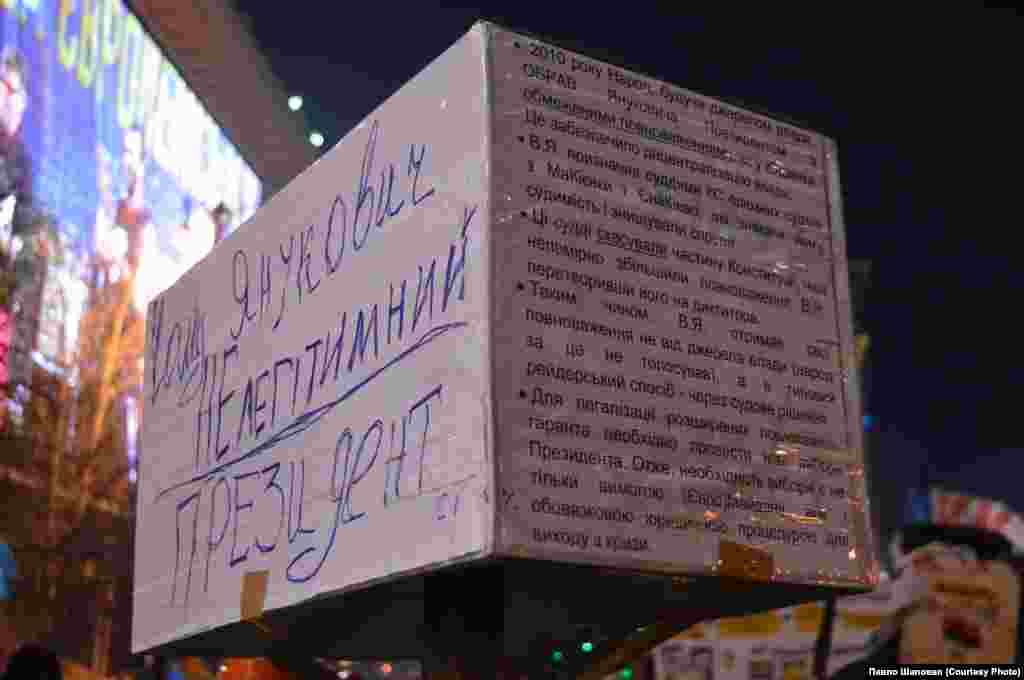 Янукович
НЕЛЕГІТИМНИЙ
ПРЕЗИДЕНТ
• 2010 року Народ, будучи джерелом влади,
ОБРАВ Януковича Президентом з
обмеженими повноваженнями
Це забезпечило децентралізацію влади.
• В.Я. призначив суддями КС
з Макіївки і Єнакієво, які знімали йому
судимість і знищували справи
• Ці судді скасували частину Конституції, чим
непомірно збільшили повноваження В.Я.
перетворивши його на диктатора.
• Таким чином В.Я. отримав
повноваження не від джерела влади (народ
за це не голосував), а в типовий
рейдерський спосіб - через судове рішення.
• Для легалізації розширених повноважень
гаранта необхідно провести
Президента. Отже, необхідність виборів є не
тільки вимогою
обовязковою юридичною процедурою для
виходу з кризи.
Павло Шаповал (Courtesy Photo)